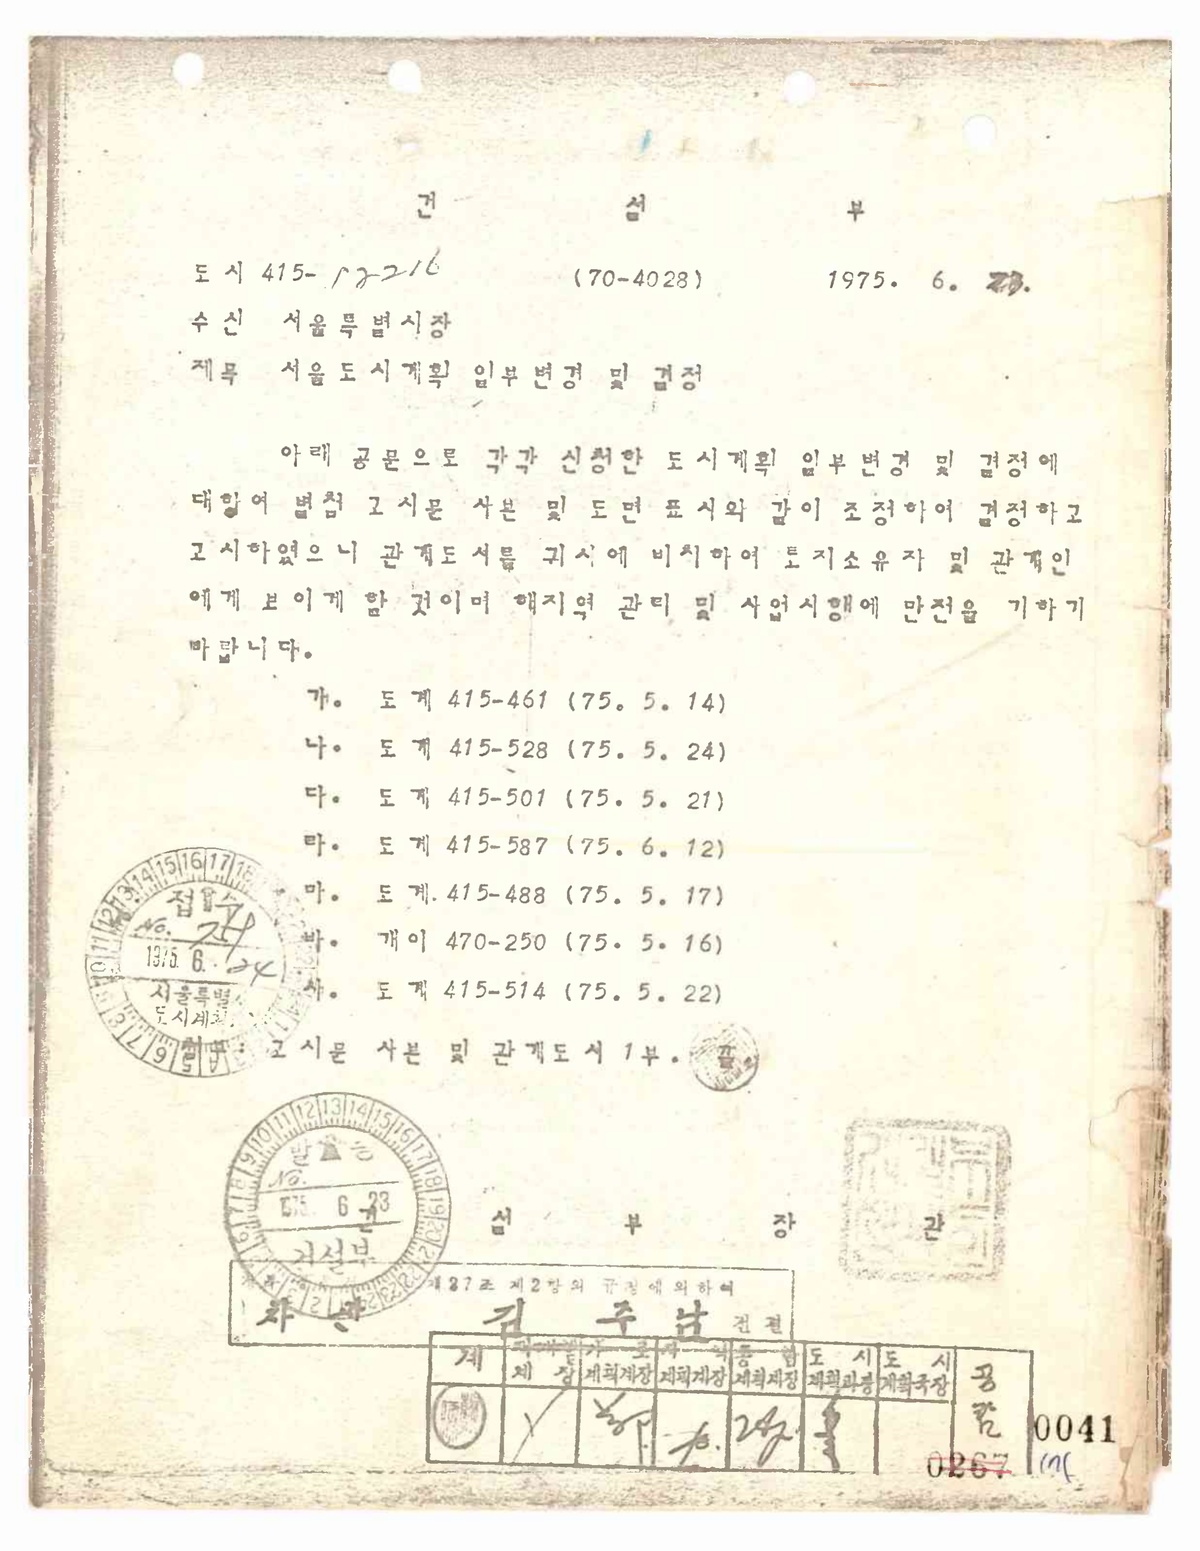 건 설 부
도시 415-12216 (70-4028) 1975. 6. 23.
수신 서울특별시장
제목 서울도시계획 일부변경 및 결정
아래 공문으로 각각 신청한 도시계획 일부변경 및 결정에
대하여 별첨 고시문 사본 및 도면 표시와 같이 조정하여 결정하고
고시하였으니 관계도서를 귀시에 비치하여 토지소유자 및 관계인
에게 보이게 할 것이며 해지역 관리 및 사업시행에 만전을 기하기
바랍니다.
가. 도계 415-461 (75. 5. 14)
나. 도계 415-528 (75. 5. 24)
다. 도계 415-501 (75. 5. 21)
라. 도계 415-587 (75. 6. 12)
마. 도계 415-488 (75. 5. 17)
바. 개이 470-250 (75. 5. 16)
사. 도계 415-514 (75. 5. 22)
접수
No.
1975. 6. 24
서울특별시
도시계획
첨부: 고시문 사본 및 관계도서 1부. 끝
발송
No.
1975. 6 23
건설부
건 설 부 장 관
제37조 제2항의 규정에의하여
차관 김주남 전결
계 계장 가로계획계장 지역계획계장 계획계장 도시계획과장 도시계획국장 공람
0041
0267